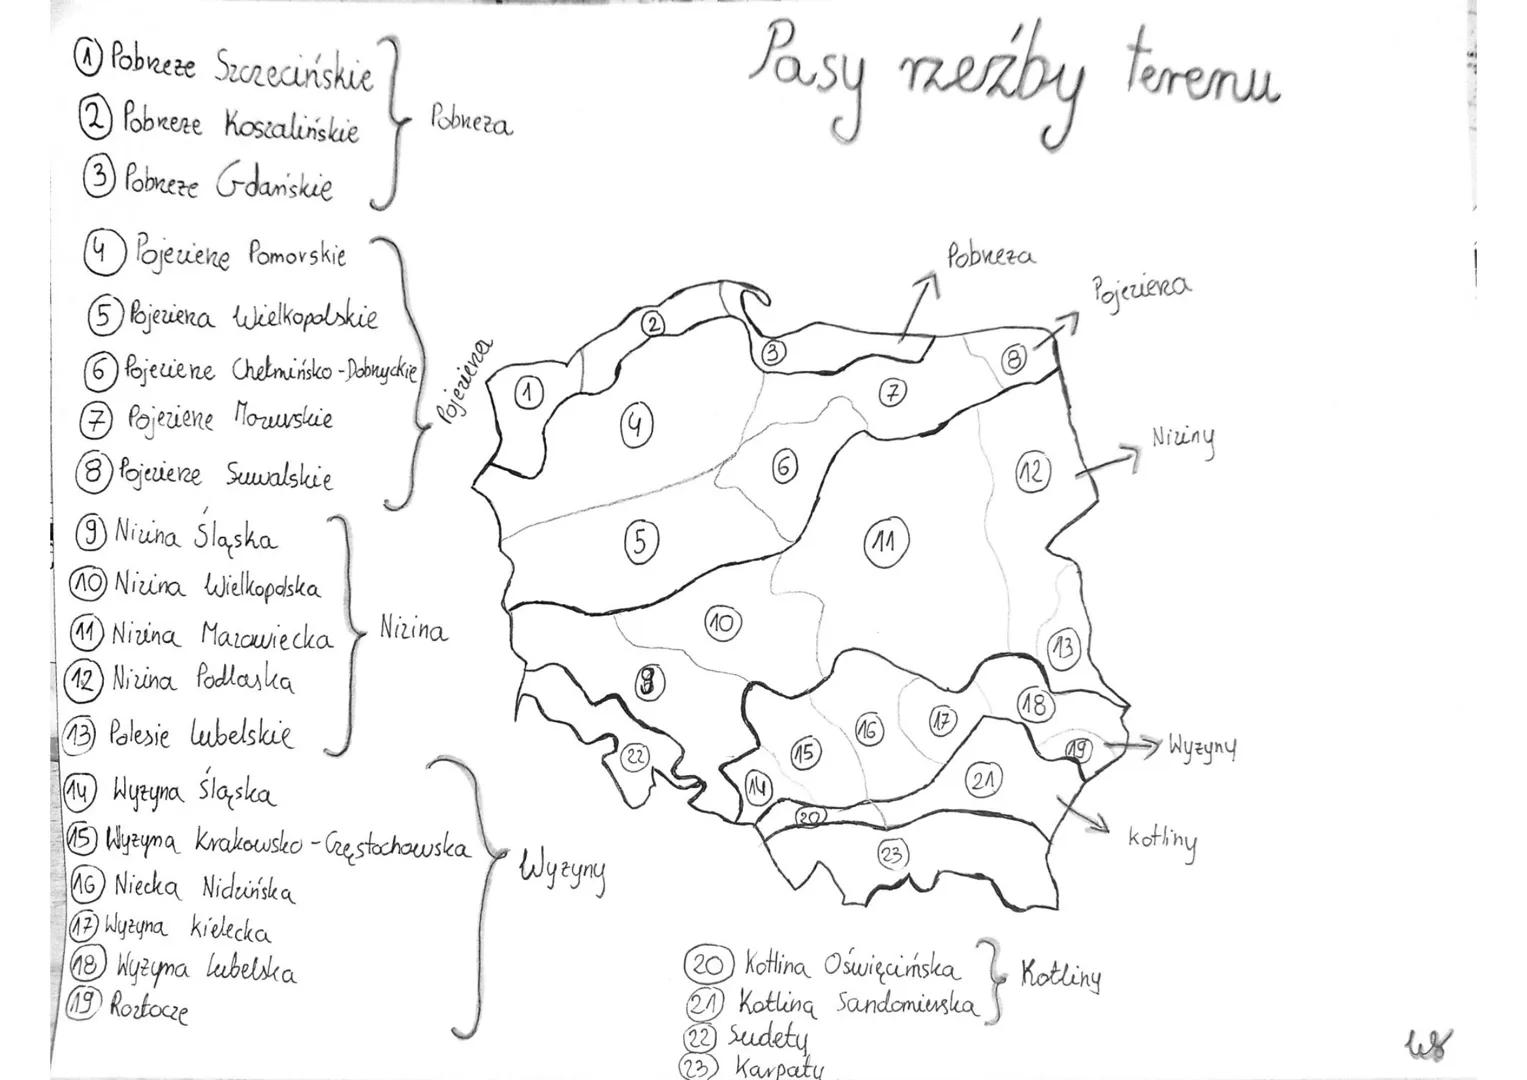 Pasy rzeźby terenu
① Pobrzeże Szczecińskie
② Pobrzeże Koszalińskie
③ Pobrzeże Gdańskie
Pobrzeża
④ Pojezierze Pomorskie
⑤ Pojezierza Wielkopolskie
⑥ Pojezierze Chełmińsko-Dobrzyckie
⑦ Pojezierze Mazurskie
⑧ Pojezierze Suwalskie
Pojezierza
⑨ Nizina Śląska
⑩ Nizina Wielkopolska
⑪ Nizina Mazowiecka
⑫ Nizina Podlaska
⑬ Polesie Lubelskie
Nizina
⑭ Wyżyna Śląska
⑮ Wyżyna Krakowsko-Częstochowska
⑯ Niecka Nidzińska
⑰ Wyżyna Kielecka
⑱ Wyżyna Lubelska
⑲ Roztocze
Wyżyny
Pobrzeża
Pojezierza
Niziny
Wyżyny
Kotliny
1
2
3
4
5
6
7
8
9
10
11
12
13
14
15
16
17
18
19
20
21
22
23
⑳ Kotlina Oświęcimska
㉑ Kotlina Sandomierska
Kotliny
㉒ Sudety
㉓ Karpaty